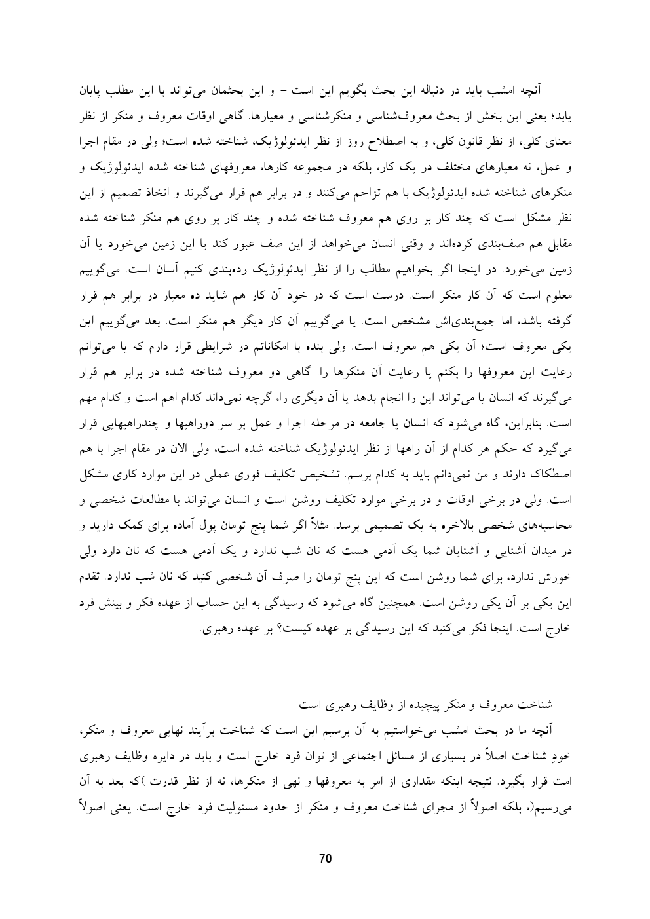 آنچه امشب باید در دنباله این بحث بگویم این است - و این بحثمان می‌تواند با این مطلب پایان
یابد؛ یعنی این بخش از بحث معروف‌شناسی و منکرشناسی و معیارها. گاهی اوقات معروف و منکر از نظر
معنای کلی، از نظر قانون کلی، و به اصطلاح روز از نظر ایدئولوژیک، شناخته شده است؛ ولی در مقام اجرا
و عمل، نه معیارهای مختلف در یک کار، بلکه در مجموعه کارها، معروفهای شناخته شده ایدئولوژیک و
منکرهای شناخته شده ایدئولوژیک با هم تزاحم می‌کنند و در برابر هم قرار می‌گیرند و اتخاذ تصمیم از این
نظر مشکل است که چند کار بر روی هم معروف شناخته شده و چند کار بر روی هم منکر شناخته شده
مقابل هم صف‌بندی کرده‌اند و وقتی انسان می‌خواهد از این صف عبور کند یا این زمین می‌خورد یا آن
زمین می‌خورد. در اینجا اگر بخواهیم مطالب را از نظر ایدئولوژیک رده‌بندی کنیم آسان است. می‌گوییم
معلوم است که آن کار منکر است. درست است که در خود آن کار هم شاید ده معیار در برابر هم قرار
گرفته باشد، اما جمع‌بندی‌اش مشخص است. یا می‌گوییم آن کار دیگر هم منکر است. بعد می‌گوییم این
یکی معروف است؛ آن یکی هم معروف است. ولی بنده با امکاناتم در شرایطی قرار دارم که یا می‌توانم
رعایت این معروفها را بکنم یا رعایت آن منکرها را. گاهی دو معروف شناخته شده در برابر هم قرار
می‌گیرند که انسان یا می‌تواند این را انجام بدهد یا آن دیگری را، گرچه نمی‌داند کدام اهم است و کدام مهم
است. بنابراین، گاه می‌شود که انسان یا جامعه در مرحله اجرا و عمل بر سر دوراهیها و چندراهیهایی قرار
می‌گیرد که حکم هر کدام از آن راهها از نظر ایدئولوژیک شناخته شده است، ولی الان در مقام اجرا با هم
اصطکاک دارند و من نمی‌دانم باید به کدام برسم. تشخیص تکلیف فوری عملی در این موارد کاری مشکل
است. ولی در برخی اوقات و در برخی موارد تکلیف روشن است و انسان می‌تواند با مطالعات شخصی و
محاسبه‌های شخصی بالاخره به یک تصمیمی برسد. مثلاً اگر شما پنج تومان پول آماده برای کمک دارید و
در میدان آشنایی و آشنایان شما یک آدمی هست که نان شب ندارد و یک آدمی هست که نان دارد ولی
خورش ندارد، برای شما روشن است که این پنج تومان را صرف آن شخصی کنید که نان شب ندارد. تقدم
این یکی بر آن یکی روشن است. همچنین گاه می‌شود که رسیدگی به این حساب از عهده فکر و بینش فرد
خارج است. اینجا فکر می‌کنید که این رسیدگی بر عهده کیست؟ بر عهده رهبری.
شناخت معروف و منکر پیچیده از وظایف رهبری است
آنچه ما در بحث امشب می‌خواستیم به آن برسیم این است که شناخت برآیند نهایی معروف و منکر،
خود شناخت اصلاً در بسیاری از مسائل اجتماعی از توان فرد خارج است و باید در دایره وظایف رهبری
امت قرار بگیرد. نتیجه اینکه مقداری از امر به معروفها و نهی از منکرها، نه از نظر قدرت )که بعد به آن
می‌رسیم(، بلکه اصولاً از مجرای شناخت معروف و منکر از حدود مسئولیت فرد خارج است. یعنی اصولاً
70